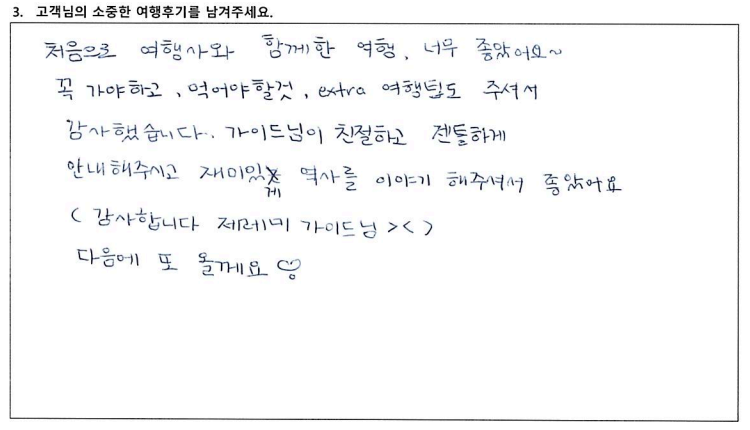 3. 고객님의 소중한 여행후기를 남겨주세요.
처음으로 여행사와 함께한 여행, 너무 좋았어요~
꼭 가야하고, 먹어야할것, extra 여행팁도 주셔서
감사했습니다. 가이드님이 친절하고 젠틀하게
안내해주시고 재미있게 역사를 이야기 해주셔서 좋았어요
(감사합니다 제레미 가이드님 ><)
다음에 또 올게요 ♡